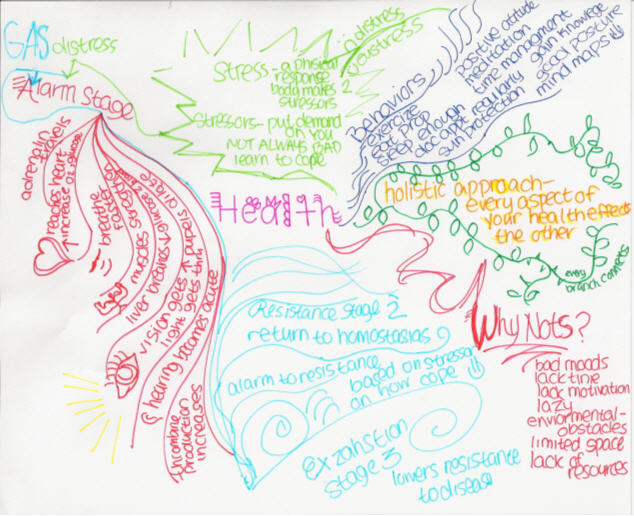 GAS
distress
Alarm Stage
adrenalin
travels
reaches heart
↑ increase O2, glucose
breathe
faster
muscles stretched
liver breaks ↓ glucose
vision gets ↑ pupels dilate
light gets thru
hearing becomes acute
thrombine
production
increases
Stress - a phisical
response
body makes 2
stressors
distress
eustress
Stressors - put demand
on you
NOT ALWAYS BAD
learn to cope
Behaviors
exercize
eat prop
sleep enough
doc appt regularly
sun protection
positive attitude
meditation
time managment
gain knowlege
good posture
mind maps
Health
holistic approach-
every aspect of
your health effects
the other
every
branch connects
Resistance Stage 2
return to homostasias
alarm to resistance
based on stressor
on how cope
exzahstion
stage 3
lowers resistance
to disease
Why Nots?
bad moods
lack time
lack motivation
lazy
enviormental-
obstacles
limited space
lack of
resources